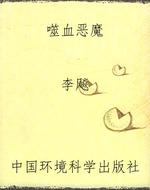 噬血恶魔
李飚
中国环境科学出版社